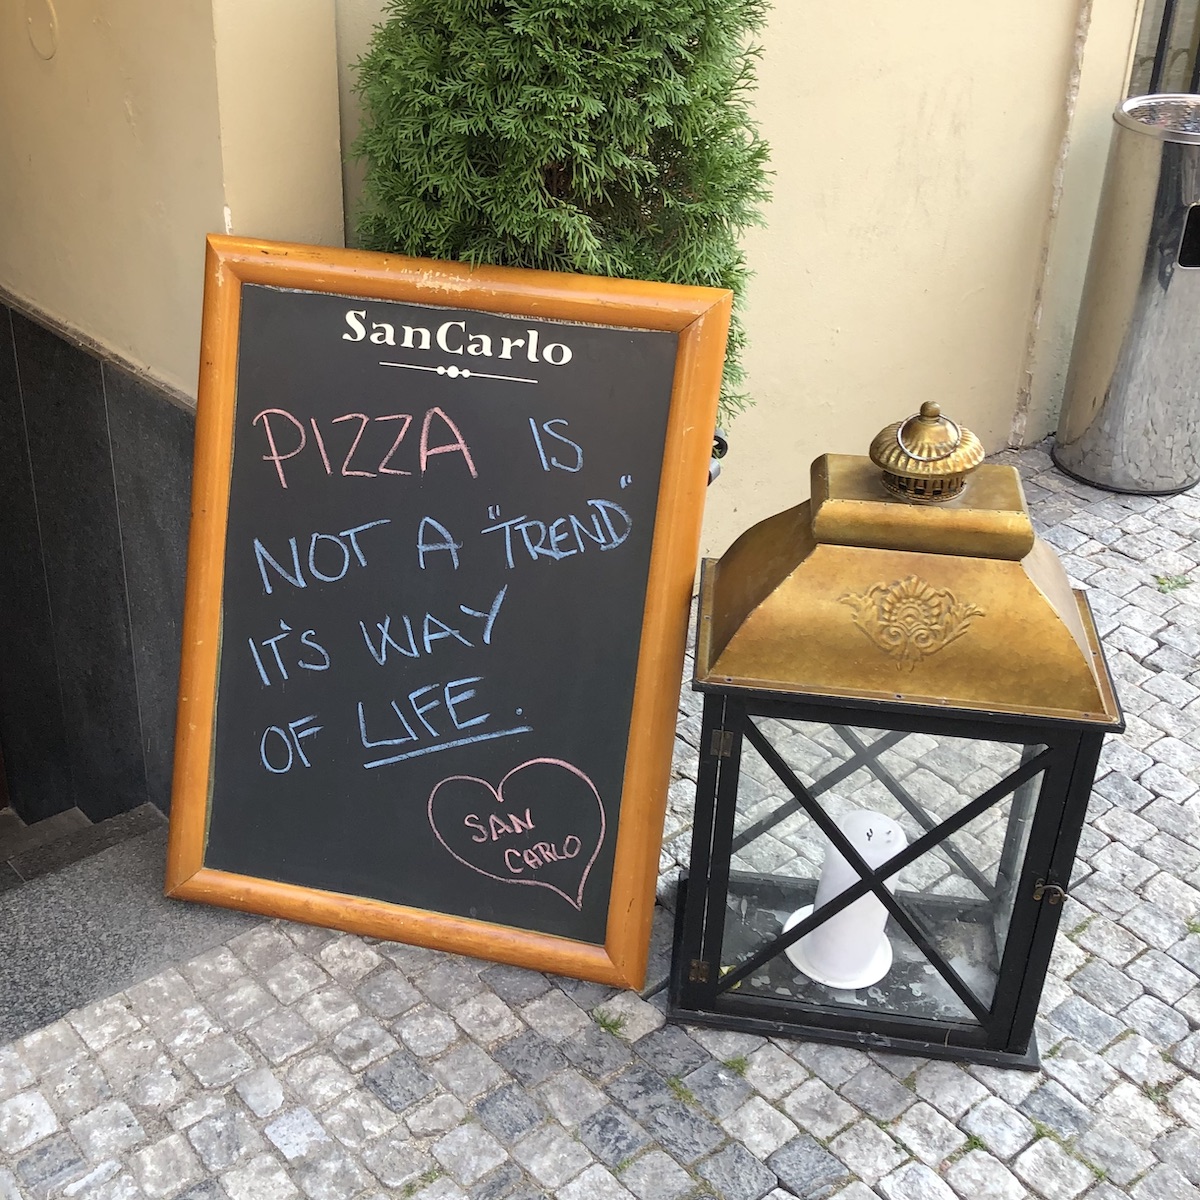 SanCarlo
PIZZA IS
NOT A "TREND"
IT'S WAY
OF LIFE.
SAN
CARLO